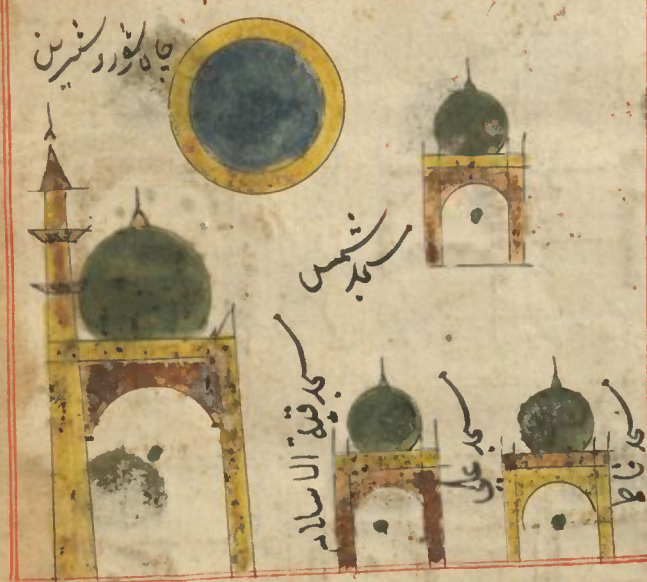 چاه شور و شیرین
مسجد شمس
مسجد قبة الاسلام
مسجد علی
مسجد فاط